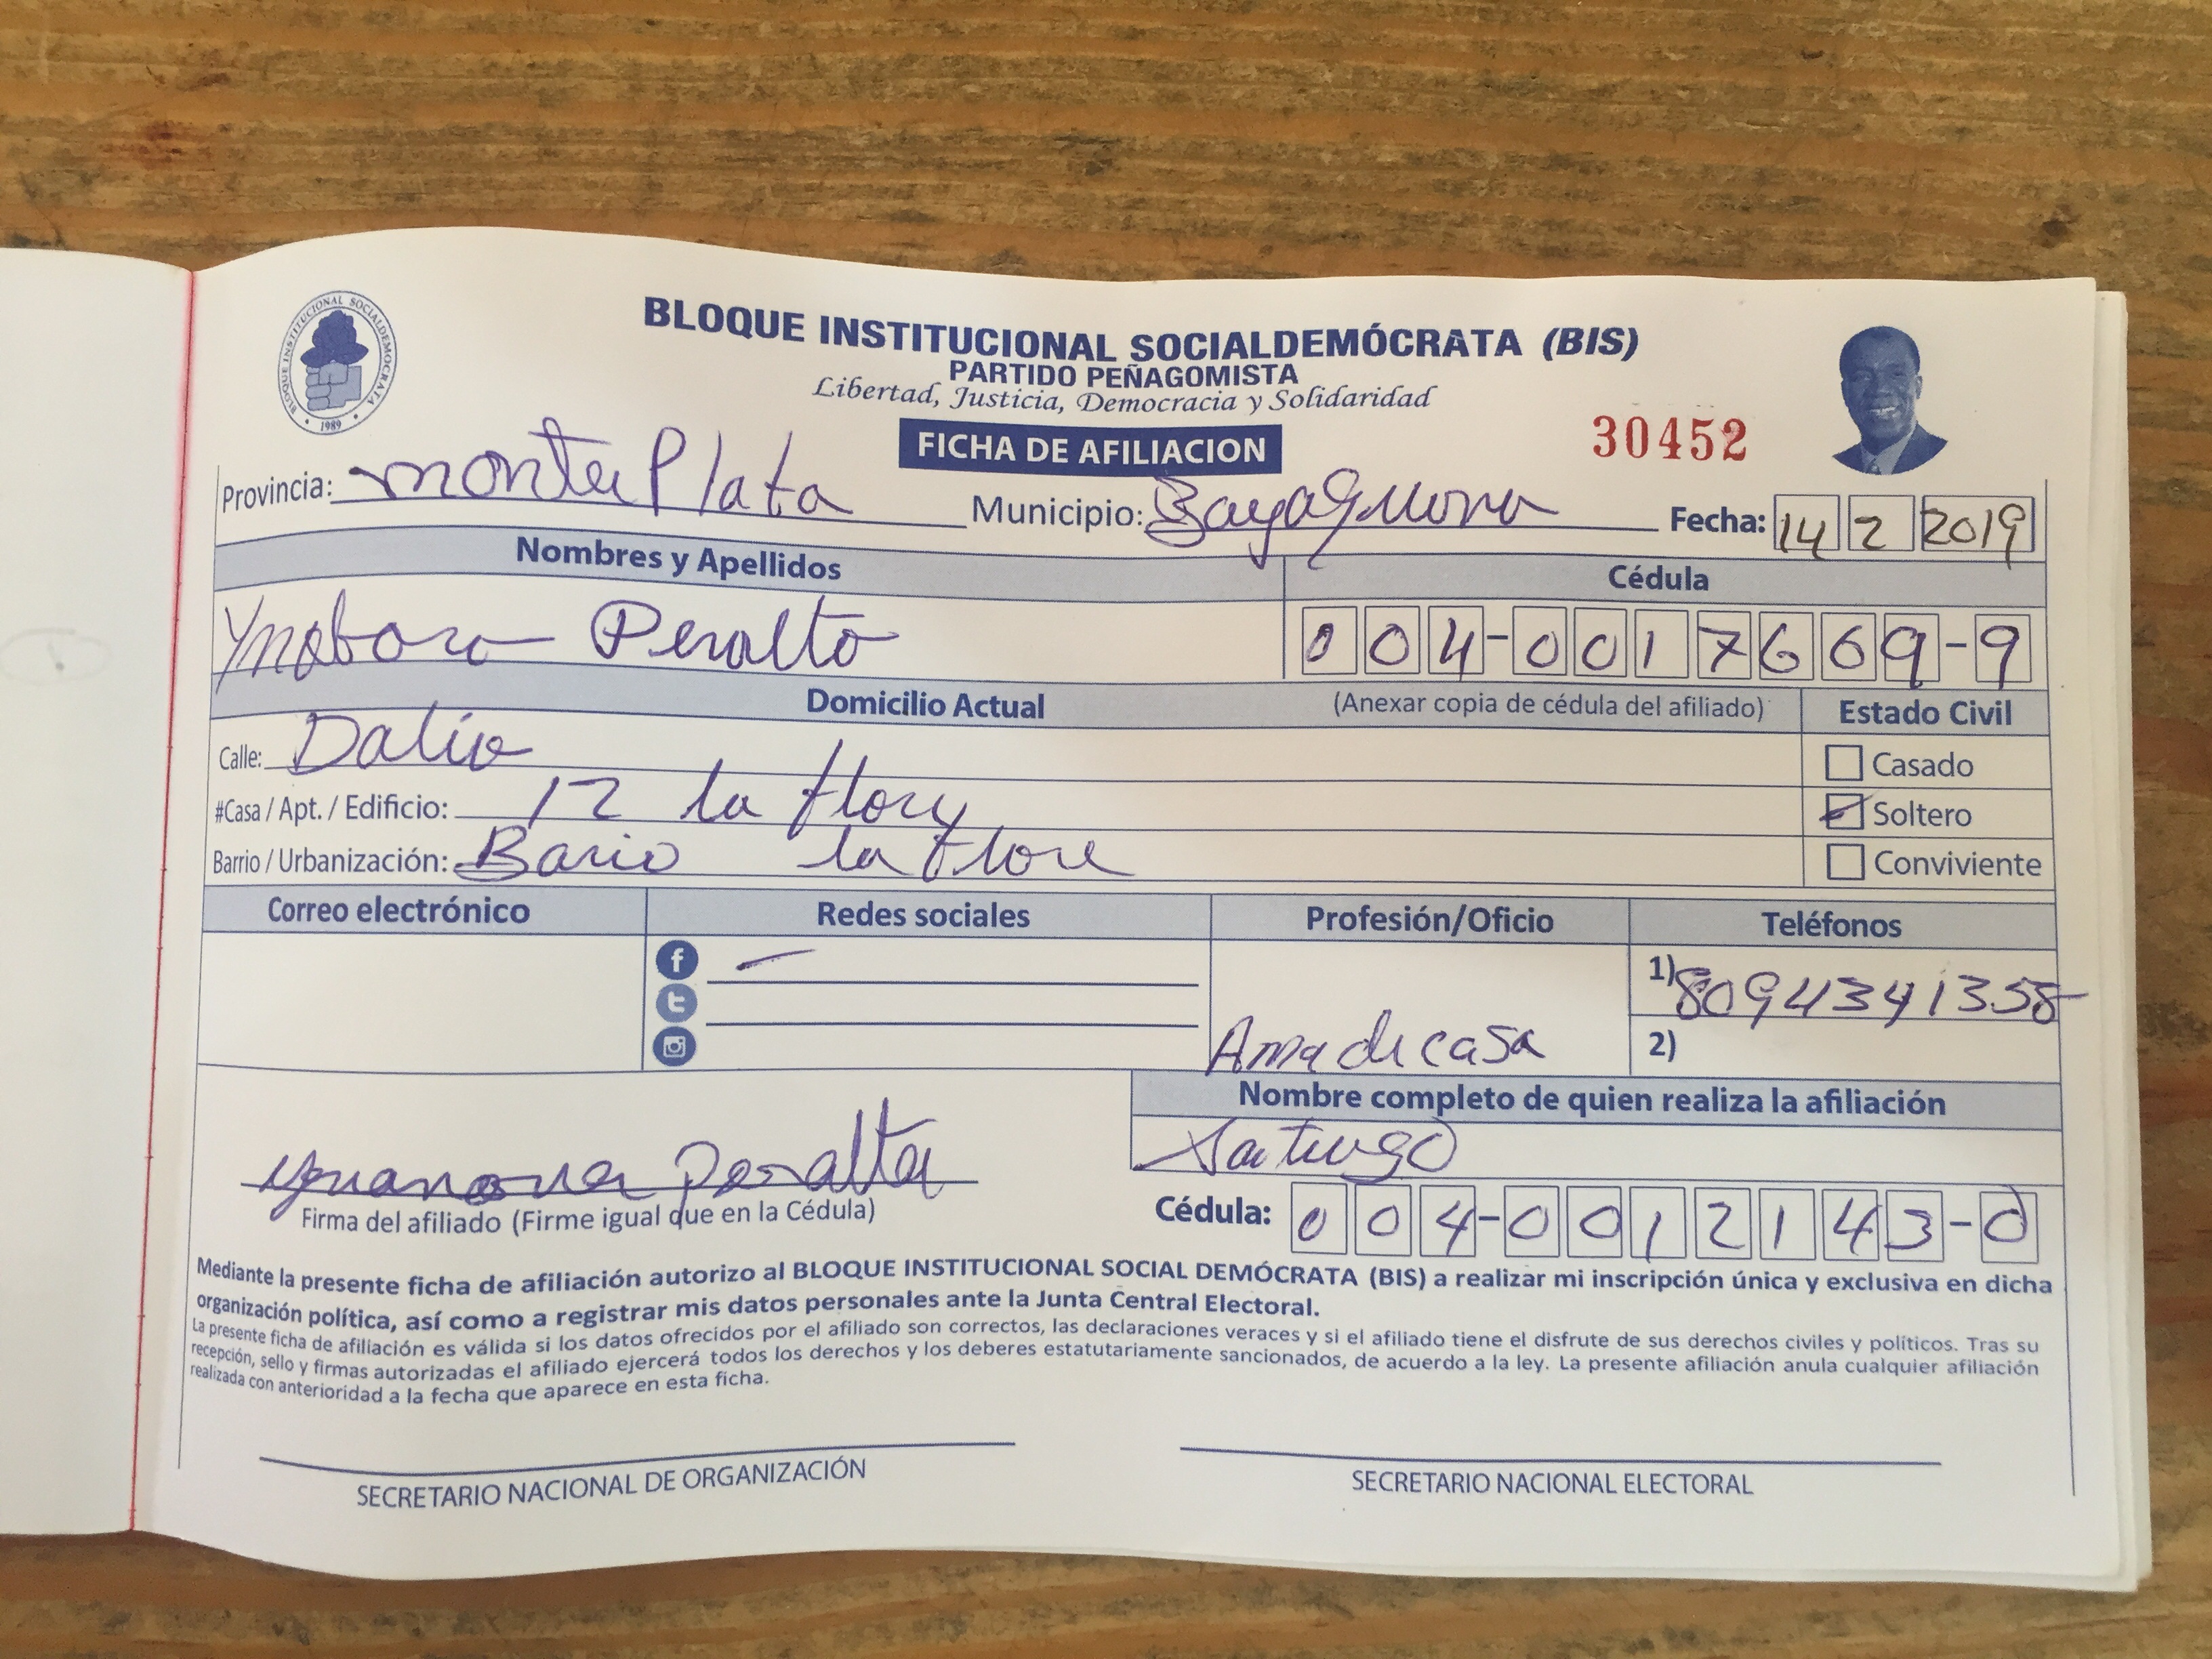 BLOQUE INSTITUCIONAL SOCIALDEMOCRATA
1989
BLOQUE INSTITUCIONAL SOCIALDEMÓCRATA (BIS)
PARTIDO PEÑAGOMISTA
Libertad, Justicia, Democracia y Solidaridad
FICHA DE AFILIACION
30452
Provincia: Monte Plata Municipio: Fecha: 14 2 2019
Nombres y Apellidos Cédula
Peralta 004-0017669-9
Domicilio Actual (Anexar copia de cédula del afiliado) Estado Civil
Calle: Dalia Casado
#Casa / Apt. / Edificio: 12 la Soltero
Barrio / Urbanización: Bario la Flore Conviviente
Correo electrónico Redes sociales Profesión/Oficio Teléfonos
1) 8094341358
Ama de casa 2)
Nombre completo de quien realiza la afiliación
Peralta
Firma del afiliado (Firme igual que en la Cédula) Cédula: 004-0012143-0
Mediante la presente ficha de afiliación autorizo al BLOQUE INSTITUCIONAL SOCIAL DEMÓCRATA (BIS) a realizar mi inscripción única y exclusiva en dicha
organización política, así como a registrar mis datos personales ante la Junta Central Electoral.
La presente ficha de afiliación es válida si los datos ofrecidos por el afiliado son correctos, las declaraciones veraces y si el afiliado tiene el disfrute de sus derechos civiles y políticos. Tras su
recepción, sello y firmas autorizadas el afiliado ejercerá todos los derechos y los deberes estatutariamente sancionados, de acuerdo a la ley. La presente afiliación anula cualquier afiliación
realizada con anterioridad a la fecha que aparece en esta ficha.
SECRETARIO NACIONAL DE ORGANIZACIÓN SECRETARIO NACIONAL ELECTORAL